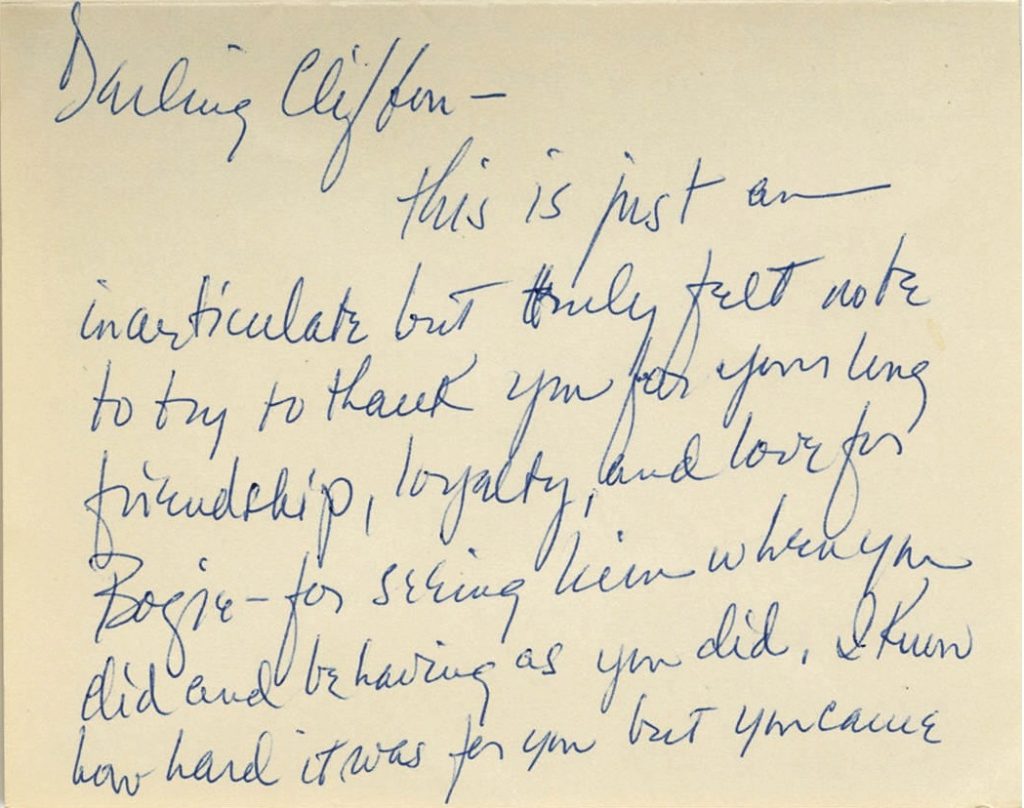 Darling Clifton –
this is just an
inarticulate but truly felt note
to try to thank you for your long
friendship, loyalty, and love for
Bogie – for seeing him when you
did and behaving as you did. I know
how hard it was for you but you came